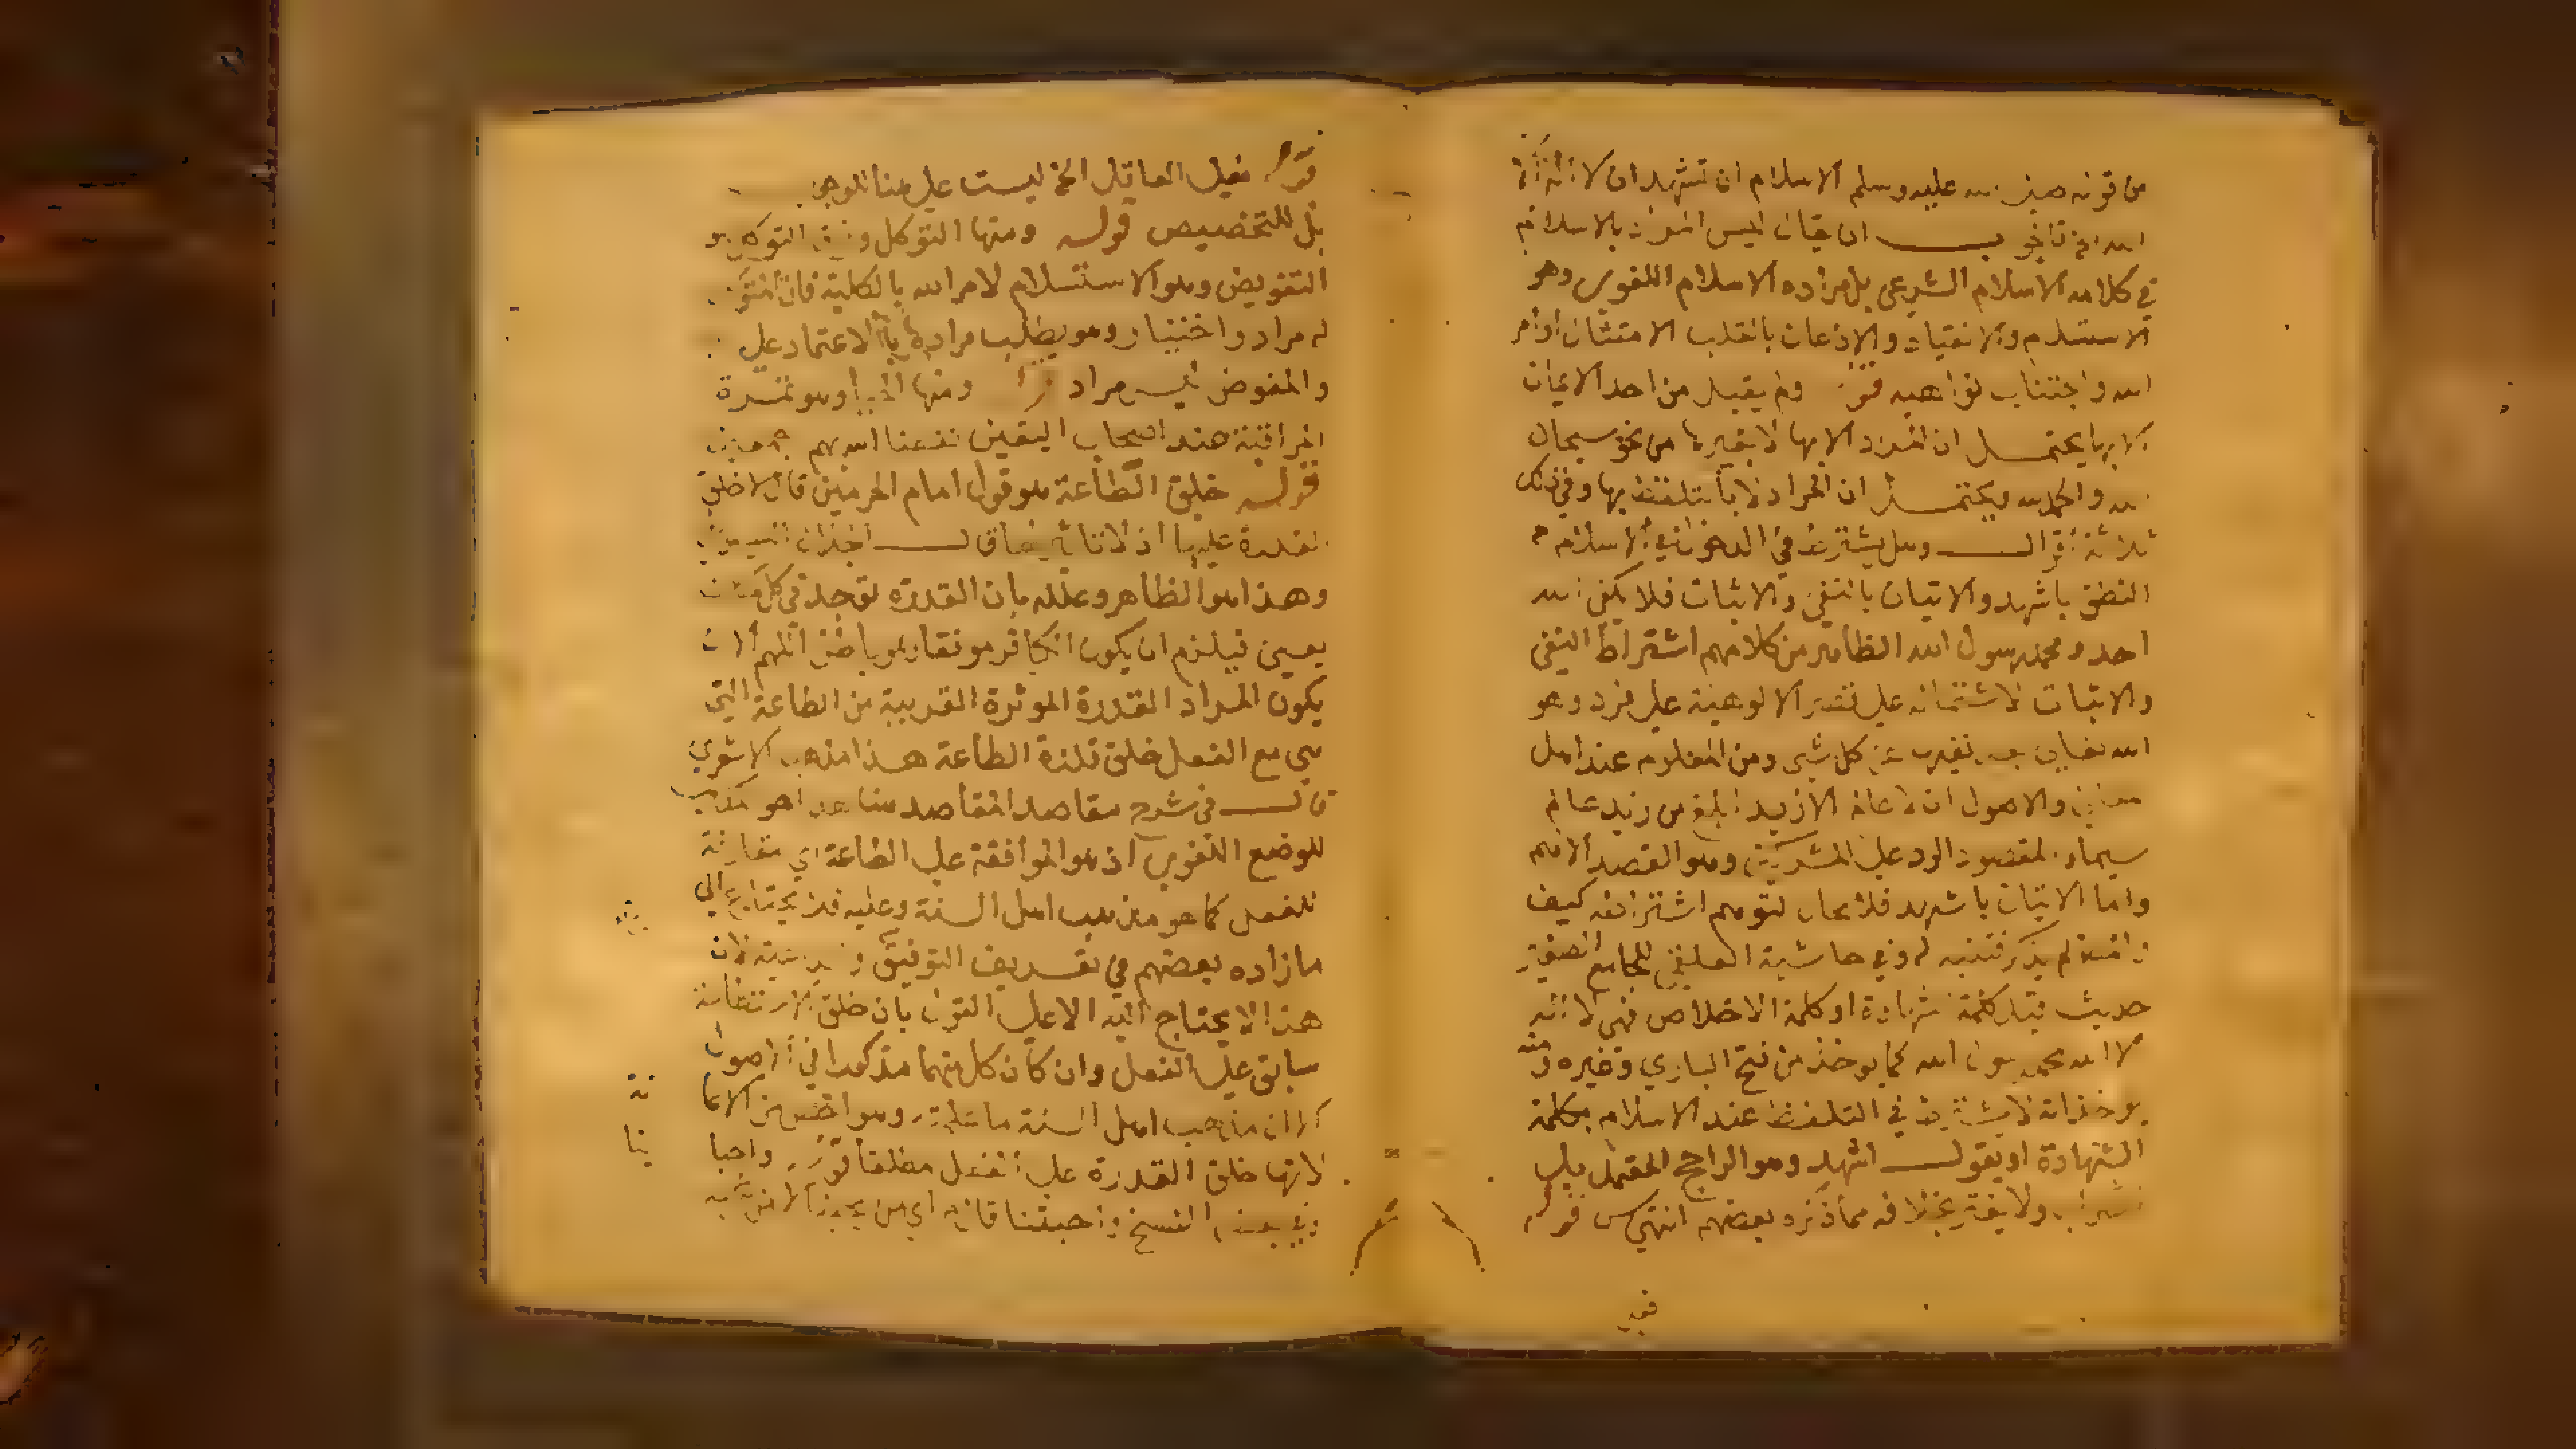 من قوله صلى الله عليه وسلم الاسلام ان تشهد ان لا اله الا
الله الخ فالجواب ان يقال ليس المراد بالاسلام
في كلامه الاسلام الشرعي بل مراده الاسلام اللغوي وهو
الاستسلام والانقياد والاذعان بالقلب لامتثال اوامر
الله واجتناب نواهيه قوله ولم يقبل من احد الايمان
الا بها يحتمل ان المراد الا بها لا بغيرها من نحو سبحان
الله والحمد لله ويحتمل ان المراد الا بالتلفظ بها وفي ذلك
ثلاثة اقوال وهل يشترط في الدخول في الاسلام
النطق باشهد والاتيان بالنفي والاثبات فلا يكفي الله
احد ومحمد رسول الله الظاهر من كلامهم اشتراط النفي
والاثبات لاشتماله على قصر الالوهية على فرد وهو
الله تعالى ونفيها عن كل شي ومن المعلوم عند اهل
المعاني والاصول ان لا عالم الا زيد ابلغ من زيد عالم
سيما والمقصود الرد على المشركين وهو القصد الاهم
واما الاتيان باشهد فلا مجال لتوهم اشتراطه كيف
والمتن لم يذكر فتنبه له وفي حاشية العلقمي للجامع الصغير
حديث كلمة الشهادة او كلمة الاخلاص فهي لا اله
الا الله محمد رسول الله كما يوخذ من فتح الباري وغيره ومنه
يوخذ انه لا يشترط في التلفظ عند الاسلام بكلمة
الشهادة ان يقول اشهد وهو الراجح المعتمد بل
الصواب ولا يغتر بخلافه مما ذكره بعضهم انتهى قوله
فقيل
قوله فقيل الفاقيل الخ ليست على هنا للوجوب
بل للتخصيص قوله ومنها التوكل وفوق التوكل هو
التفويض وهو الاستسلام لامر الله بالكلية فان المتوكل
له مراد واختيار وهو يطلب مراده بالاعتماد على
والمفوض ليس له مراد قوله ومنها الحيا وهو ثمرة
المراقبة عند اصحاب اليقين نفعنا الله بهم
قوله خلق الطاعة هو قول امام الحرمين قال لا خلق
القدرة عليها اذ لا تاثير لها قال
وهذا هو الظاهر وعلله بان القدرة توجد في كل
يعصي فيلزم ان يكون الكافر موفقا وهو باطل اللهم الا ان
يكون المراد القدرة الموثرة القريبة من الطاعة التي
هي مع الفعل خلق تلك الطاعة هذا مذهب الاشعري
قال في شرح مقاصد المقاصد هنا هو
للوضع اللغوي اذ هو الموافقة على الطاعة اي مقارنة
للفعل كما هو مذهب اهل السنة وعليه فلا يحتاج الى
ما زاده بعضهم في تعريف التوفيق لان
هذا لا يحتاج اليه الا على القول بان خلق الاستطاعة
سابق على الفعل وان كان كل منهما مذكورا في الاصول
الا ان مذهب اهل السنة ما قلته وهو اخص من الاعانة
لانها خلق القدرة على الفعل مطلقا قوله واحبابنا
وفي بعض النسخ واحبتنا قال اي من يحبنا